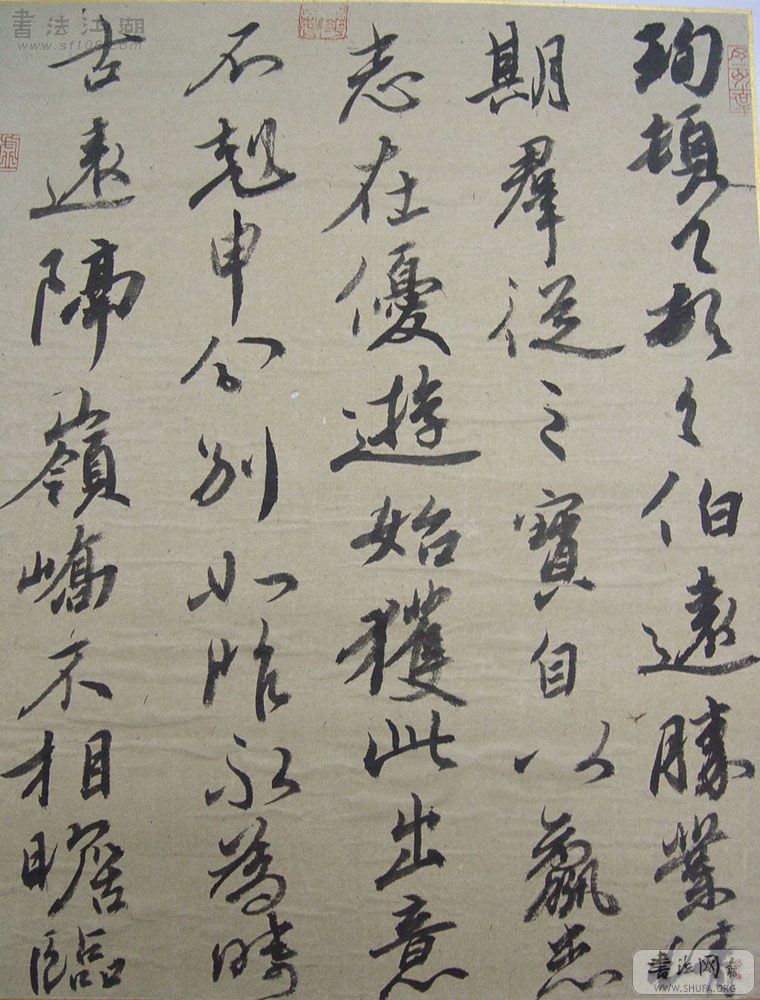 珣頓々首々伯遠勝業情
期羣從之寶自以羸患
志在優遊始獲此出意
不剋申分別如昨永為疇
古遠隔嶺嶠不相瞻臨
書法江湖
www.sf108.com
書法网
WWW.SHUFA.ORG